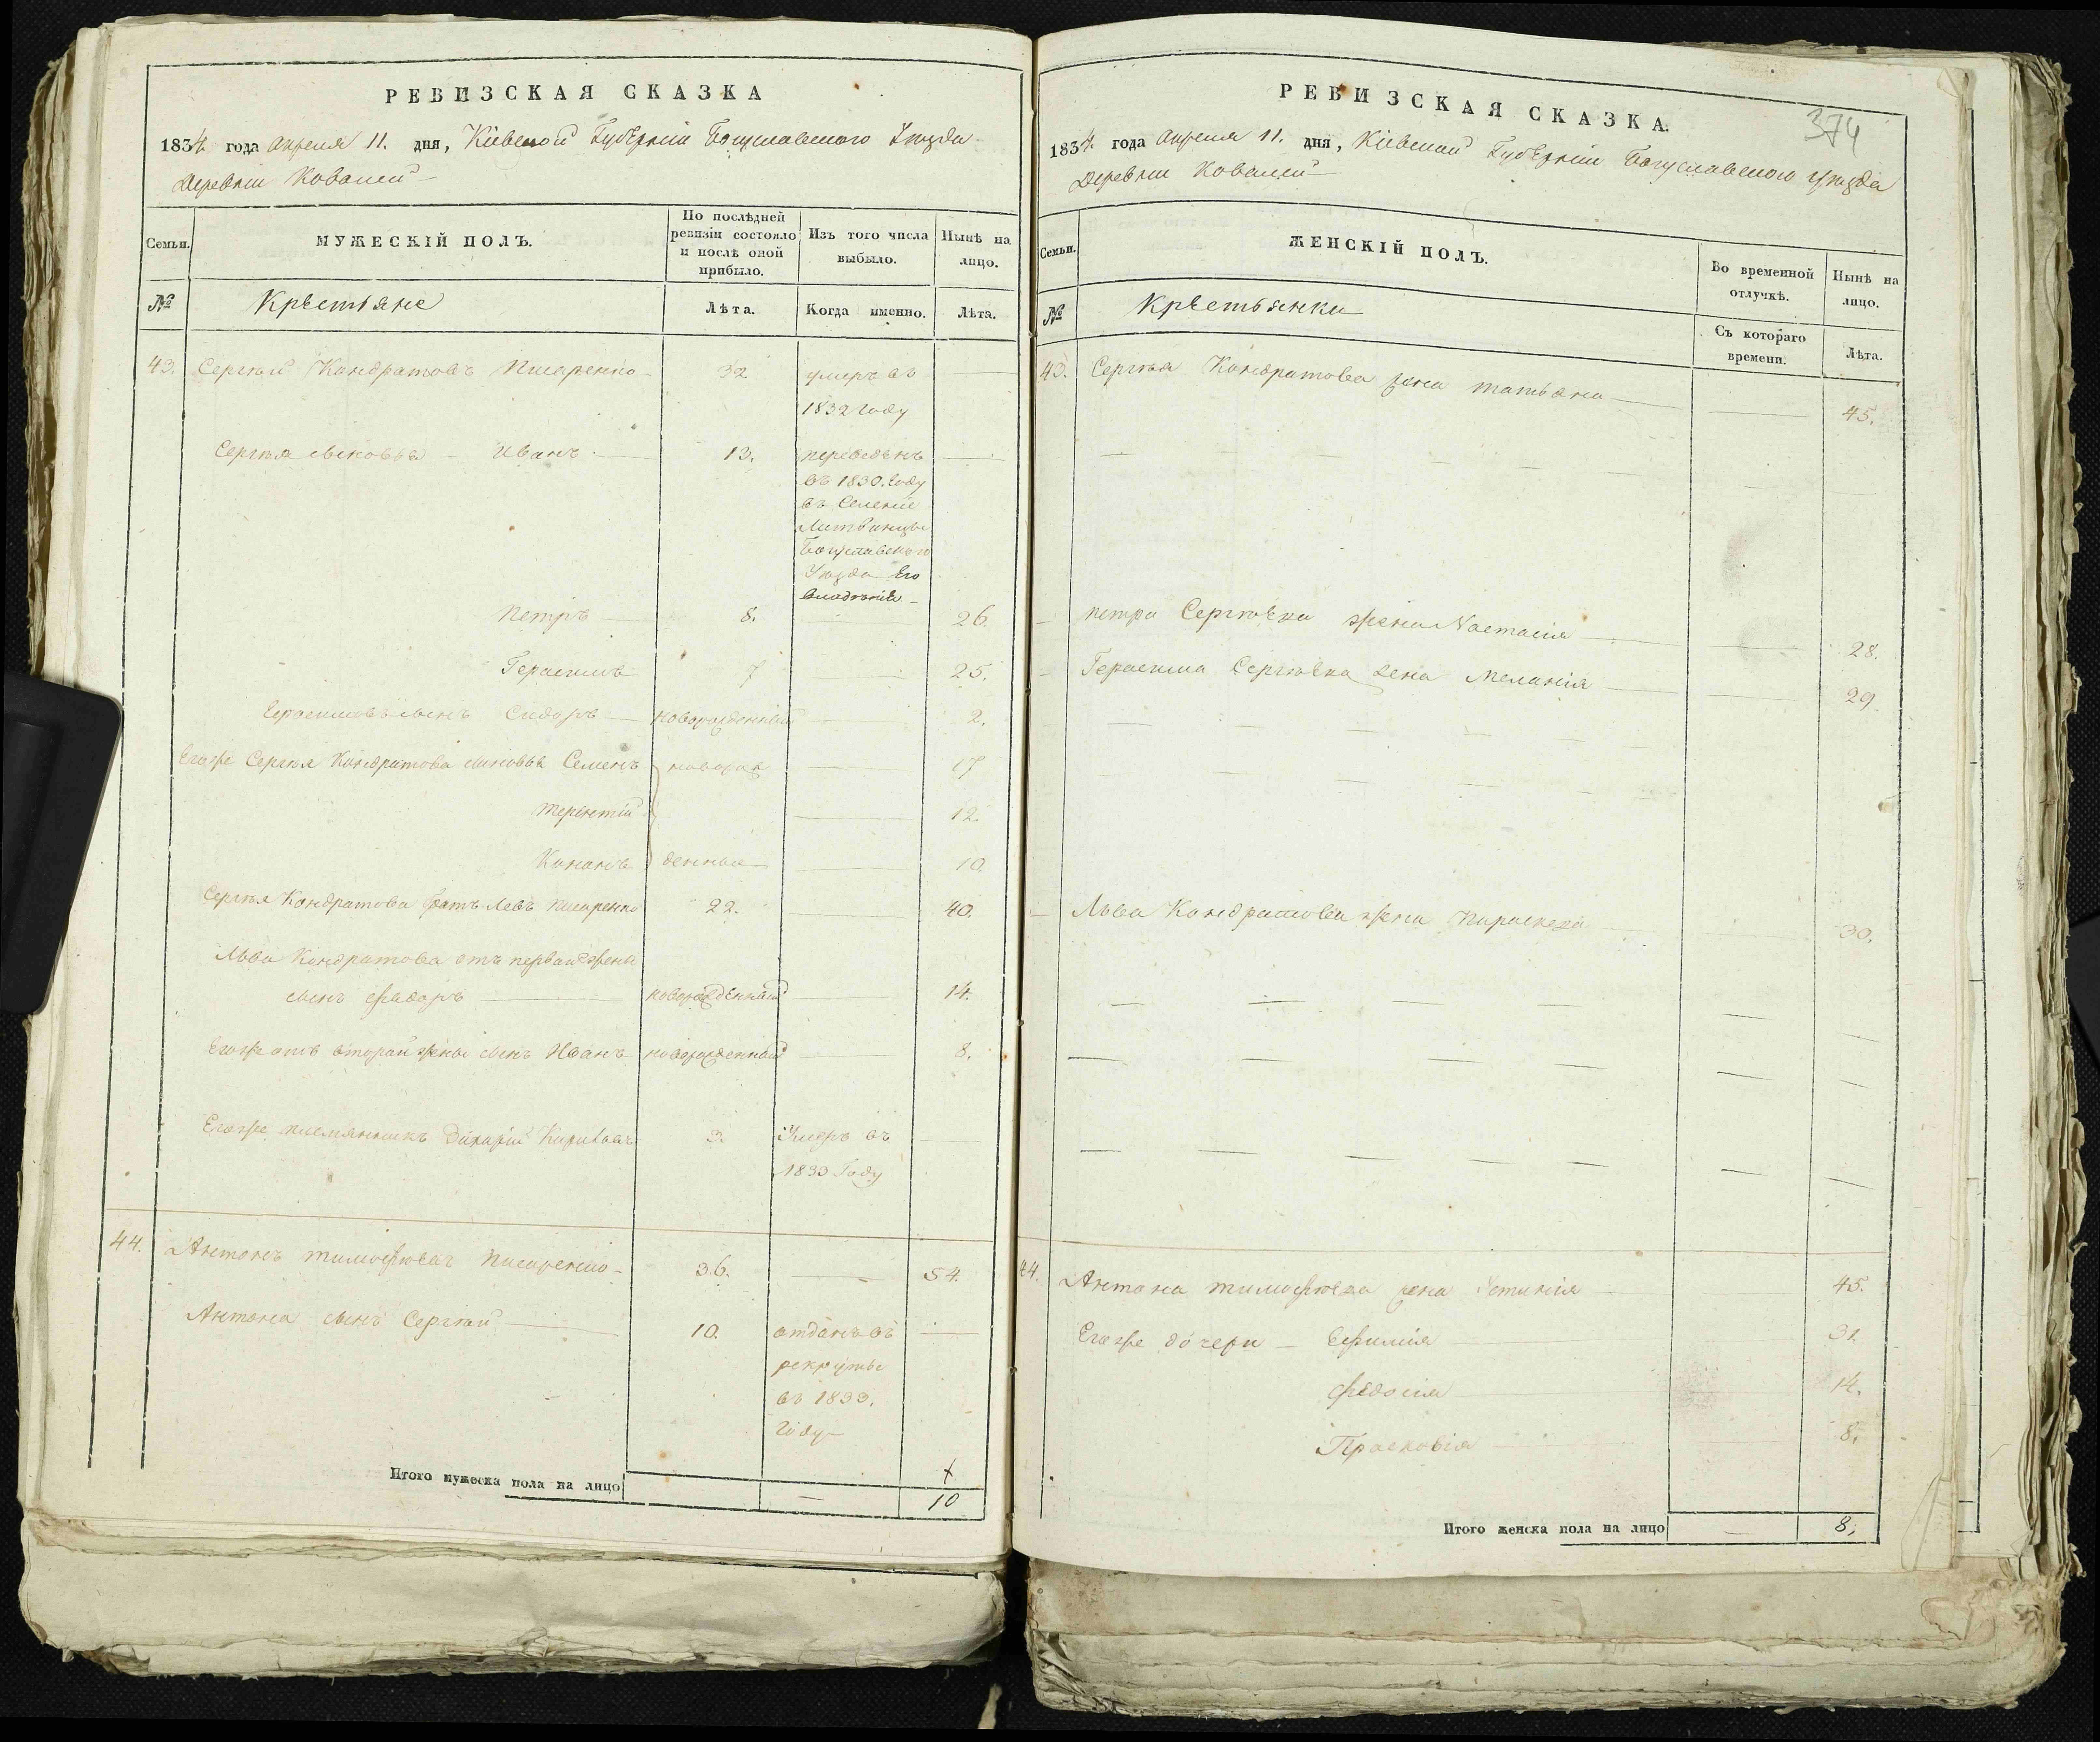 РЕВИЗСКАЯ СКАЗКА
1834 года апреля 11. дня, Кіевской Губерніи Богуславского Уѣзда
Деревни Ковалей
Семьи.
МУЖЕСКІЙ ПОЛЪ.
По послѣдней ревизіи состояло и послѣ оной прибыло.
Изъ того числа выбыло.
Нынѣ на лицо.
№
Крестьяне
Лѣта.
Когда именно.
Лѣта.
43. Сергѣй Кондратовъ Писаренко 32 умеръ въ
1832 году
Сергѣя сыновья Иванъ 13. переведенъ
въ 1830. году
въ Селеніе
Литвинцы
Богуславского
Уѣзда Его
владѣнія
Петръ 8. 26.
Герасимъ 7 25.
Герасимовъ сынъ Сидоръ новорожденный 2.
Егожъ Сергѣя Кондратова сыновья Семенъ новорож 17
Терентій 12.
Кононъ денные 10.
Сергѣя Кондратова братъ Левъ Писаренко 22. 40.
Льва Кондратова отъ первой жены
сынъ Федоръ новорожденный 14.
Егоже отъ второй жены сынъ Иванъ новорожденный 8.
Егоже племянникъ 3. Умеръ въ
1833 году
44. Антонъ Тимофѣевъ Писаренко 36. 54.
Антона сынъ Сергѣй 10. отданъ въ
рекруты
въ 1833.
году
Итого мужеска пола на лицо 10
РЕВИЗСКАЯ СКАЗКА.
374
1834 года апреля 11. дня, Кіевской Губерніи Богуславского уѣзда
Деревни Ковалей
Семьи.
ЖЕНСКІЙ ПОЛЪ.
Во временной отлучкѣ.
Нынѣ на лицо.
№
Крестьянки
Съ котораго времени.
Лѣта.
43. Сергѣя Кондратова жена Татьяна 45.
Петра Сергѣева жена Настасія 28.
Герасима Сергѣева жена Меланія 29.
Льва Кондратова жена Параскева 30.
44. Антона Тимофѣева жена Устинія 45.
Егоже дочери Ефимія 31.
Федосія 14.
Прасковія 8.
Итого женска пола на лицо 8.